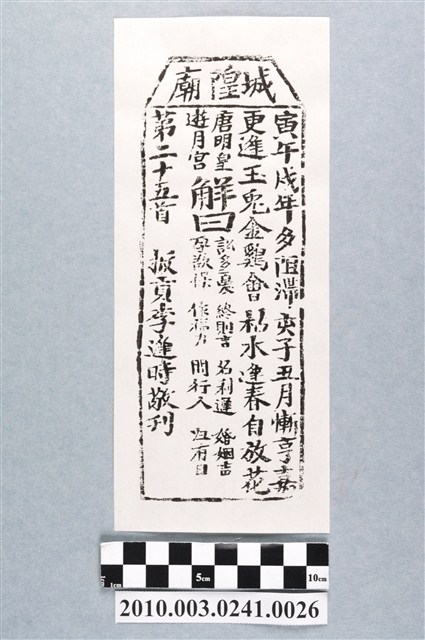 城隍廟
寅午戌年多阻滯亥子丑月漸亨嘉
更逢玉兔金鷄會枯水逢春自放花
唐明皇
遊月宮
解曰
訟多憂 終則吉 名利遲 婚姻吉
孕 保 作福力 問行人 歸有日
第二十五首 拔貢李逢時敬刊
1cm 5cm 10cm
2010.003.0241.0026